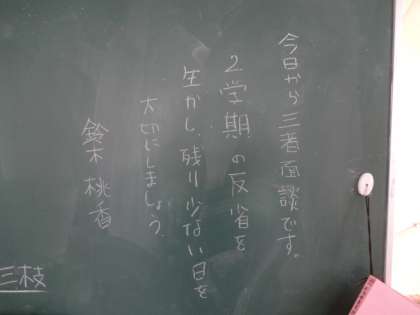 今日から三者面談です。
2学期の反省を
生かし、残り少ない日を
大切にしましょう。
鈴木桃香
三枝